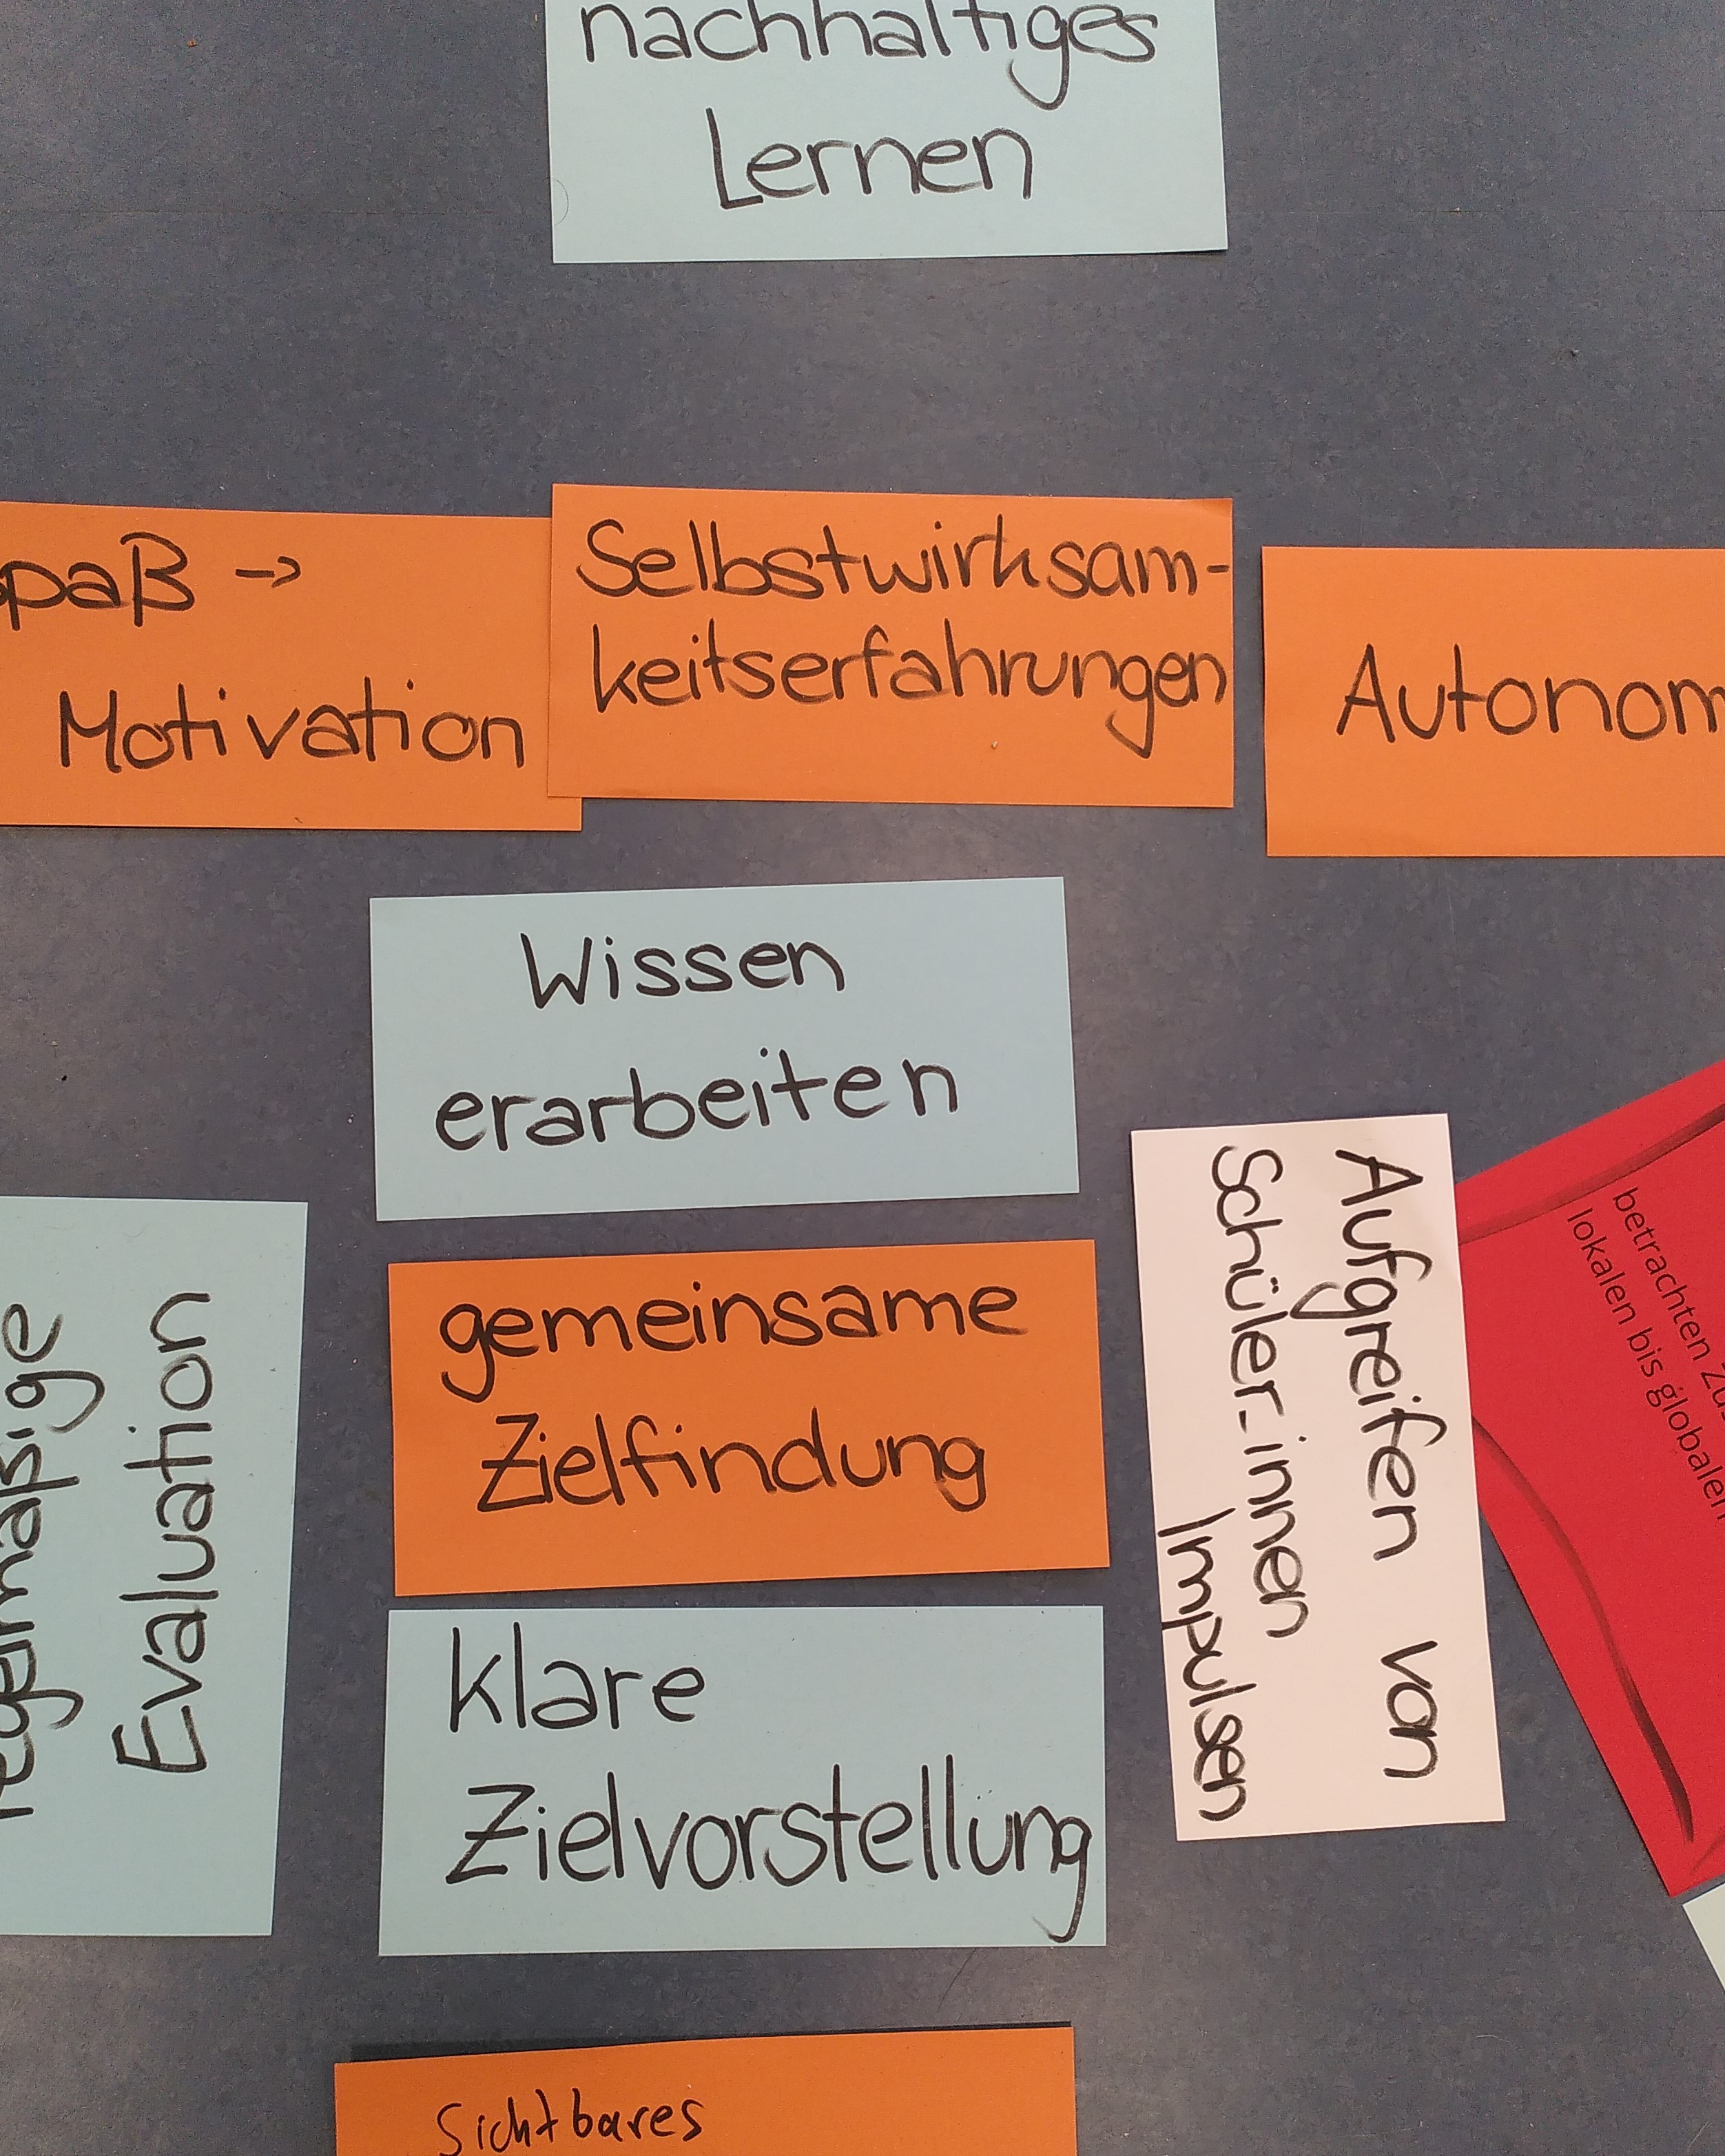 nachhaltiges
Lernen
Spaß →
Motivation
Selbstwirksam-
keitserfahrungen
Autonom
Wissen
erarbeiten
regelmäßige
Evaluation
gemeinsame
Zielfindung
Aufgreifen von
Schüler_innen
Impulsen
betrachten
lokalen bis globalen
klare
Zielvorstellung
Sichtbares